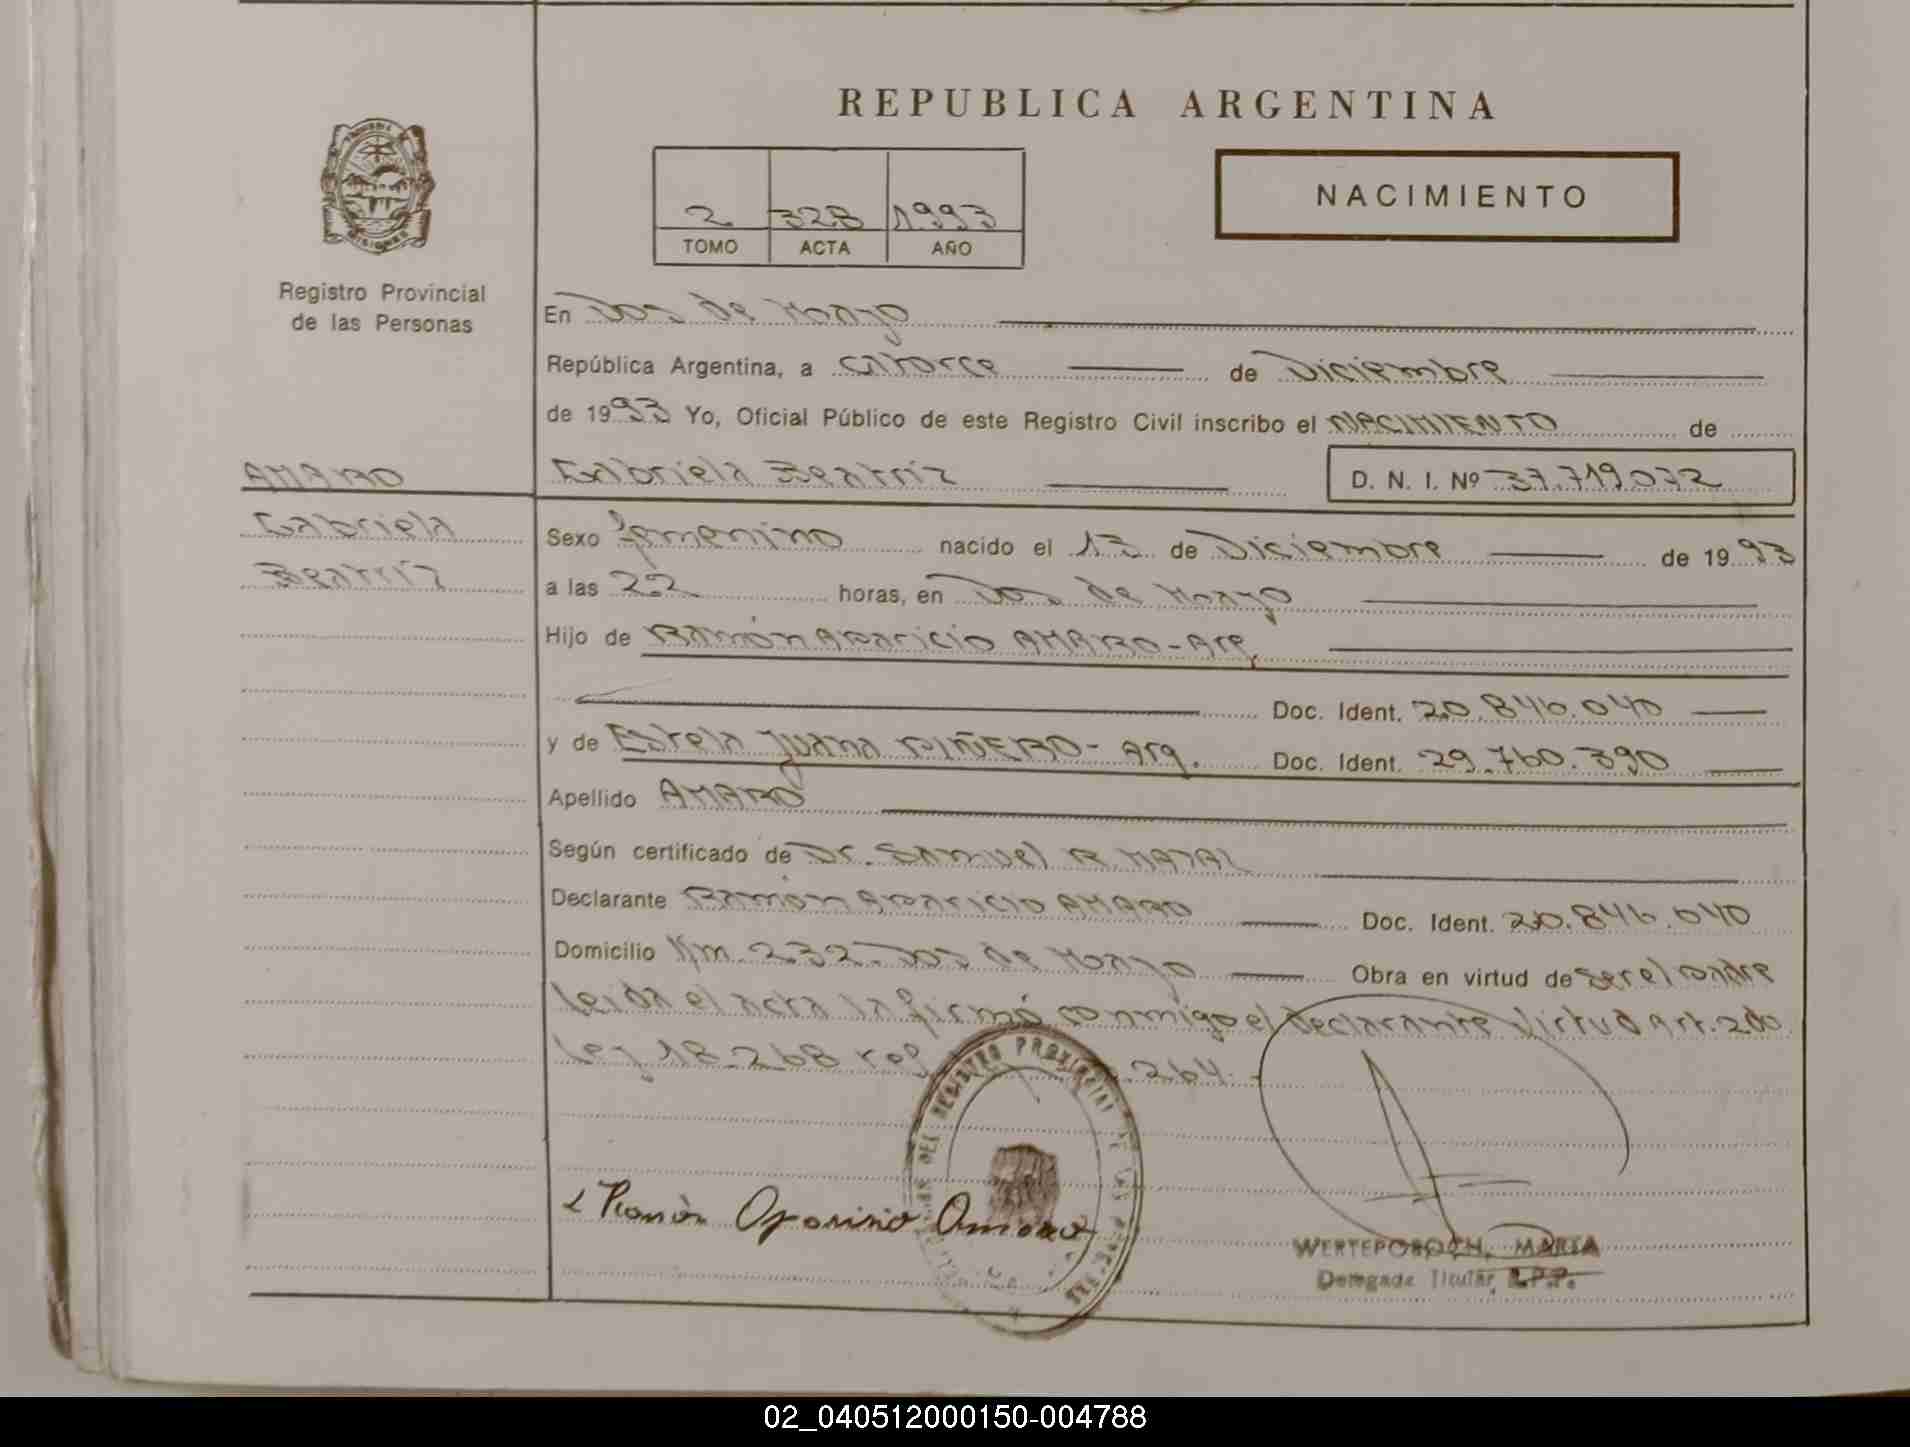 REPUBLICA ARGENTINA
NACIMIENTO
2 328 1993
TOMO ACTA AÑO
Registro Provincial
de las Personas
En Dos de Mayo
República Argentina, a catorce de Diciembre
de 1993 Yo, Oficial Público de este Registro Civil inscribo el NACIMIENTO de
AMARO
Gabriela Beatriz D. N. I. Nº 37.719.072
Gabriela
Beatriz
Sexo femenino nacido el 13 de Diciembre de 1993
a las 22 horas, en Dos de Mayo
Hijo de Ramón Aparicio AMARO - Arg.
Doc. Ident. 20.846.040
y de Estela Juana PIÑERO - Arg. Doc. Ident. 29.760.390
Apellido AMARO
Según certificado de Dr. Samuel R.
Declarante Ramón Aparicio AMARO Doc. Ident. 20.846.040
Domicilio Km. 232 - Dos de Mayo Obra en virtud de ser el padre
leida el acta la firmó conmigo el declarante virtud Art. 2do
Ley 18.268 .264.-
REGISTRO PROVINCIAL DE LAS PERSONAS
Ramón Aparisio Amaro
WERTEPOROCH, MARTA
Delegada Titular, R.P.P.
02_040512000150-004788